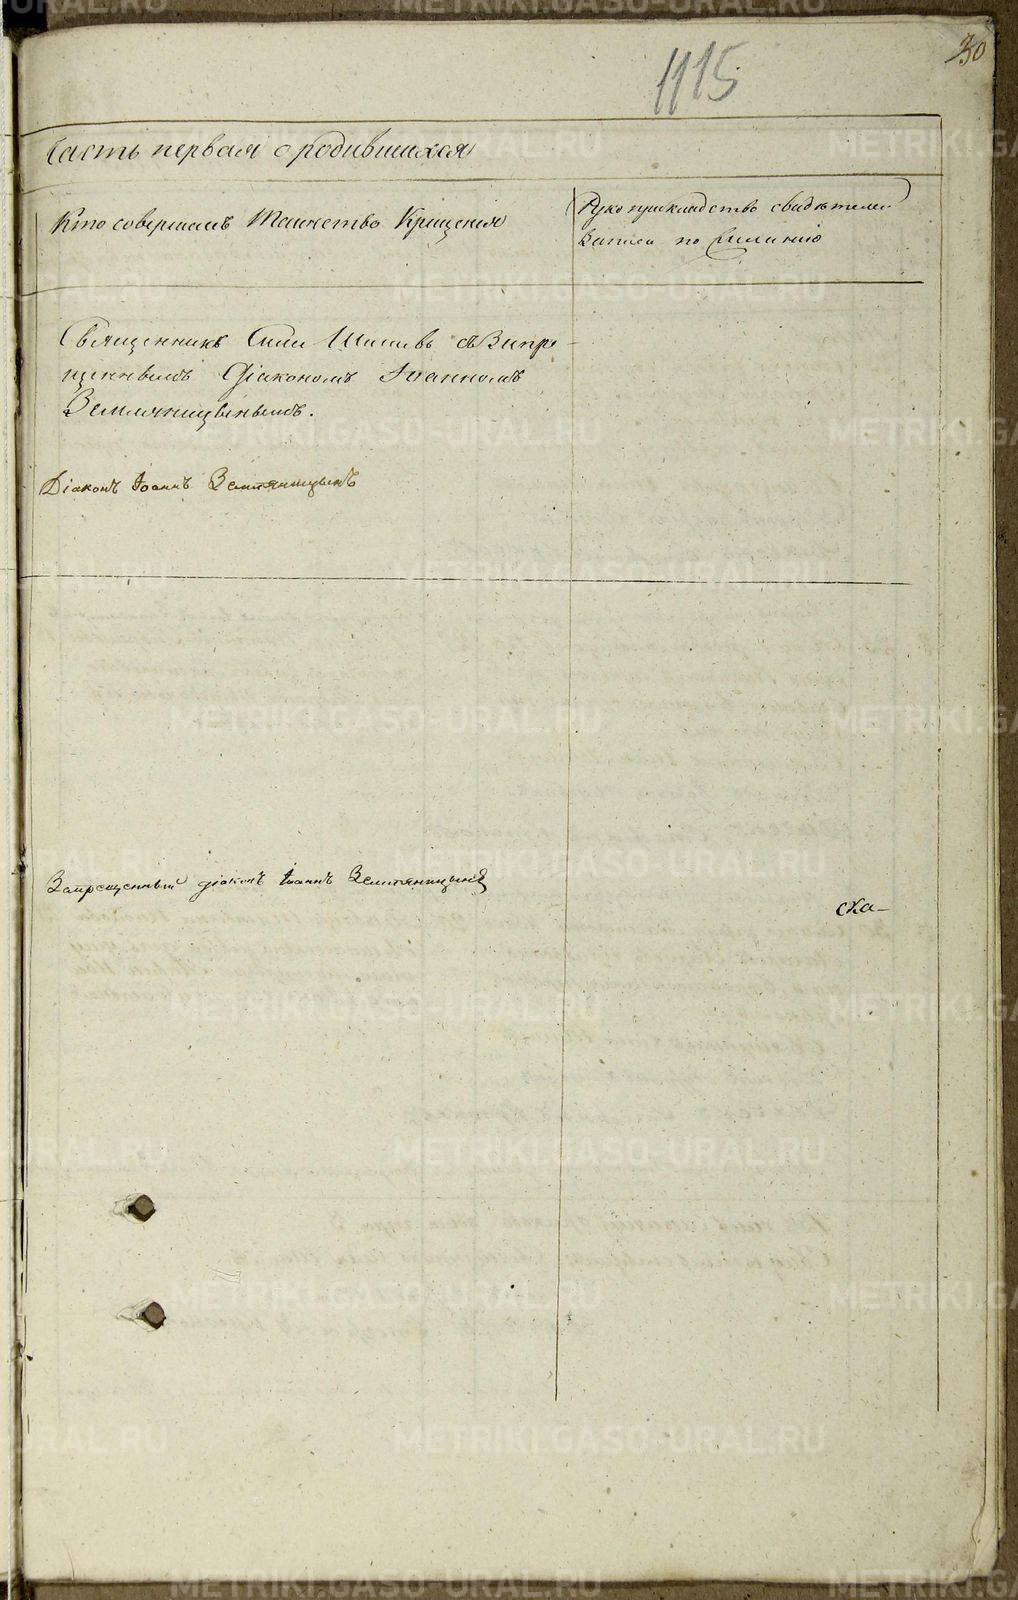 30
1115
Часть первая о родившихся
Кто совершалъ Таинство Крещенія
Рукоприкладство свидѣтелей
записи по желанію
Священникъ Сила Шишевъ съ Запре-
щеннымъ Діакономъ Іоанномъ
Земляницынымъ.
Діаконъ Іоаннъ Земляницынъ
Запрещенный діаконъ Іоаннъ Земляницынъ
ска-
METRIKI.GASO-URAL.RU